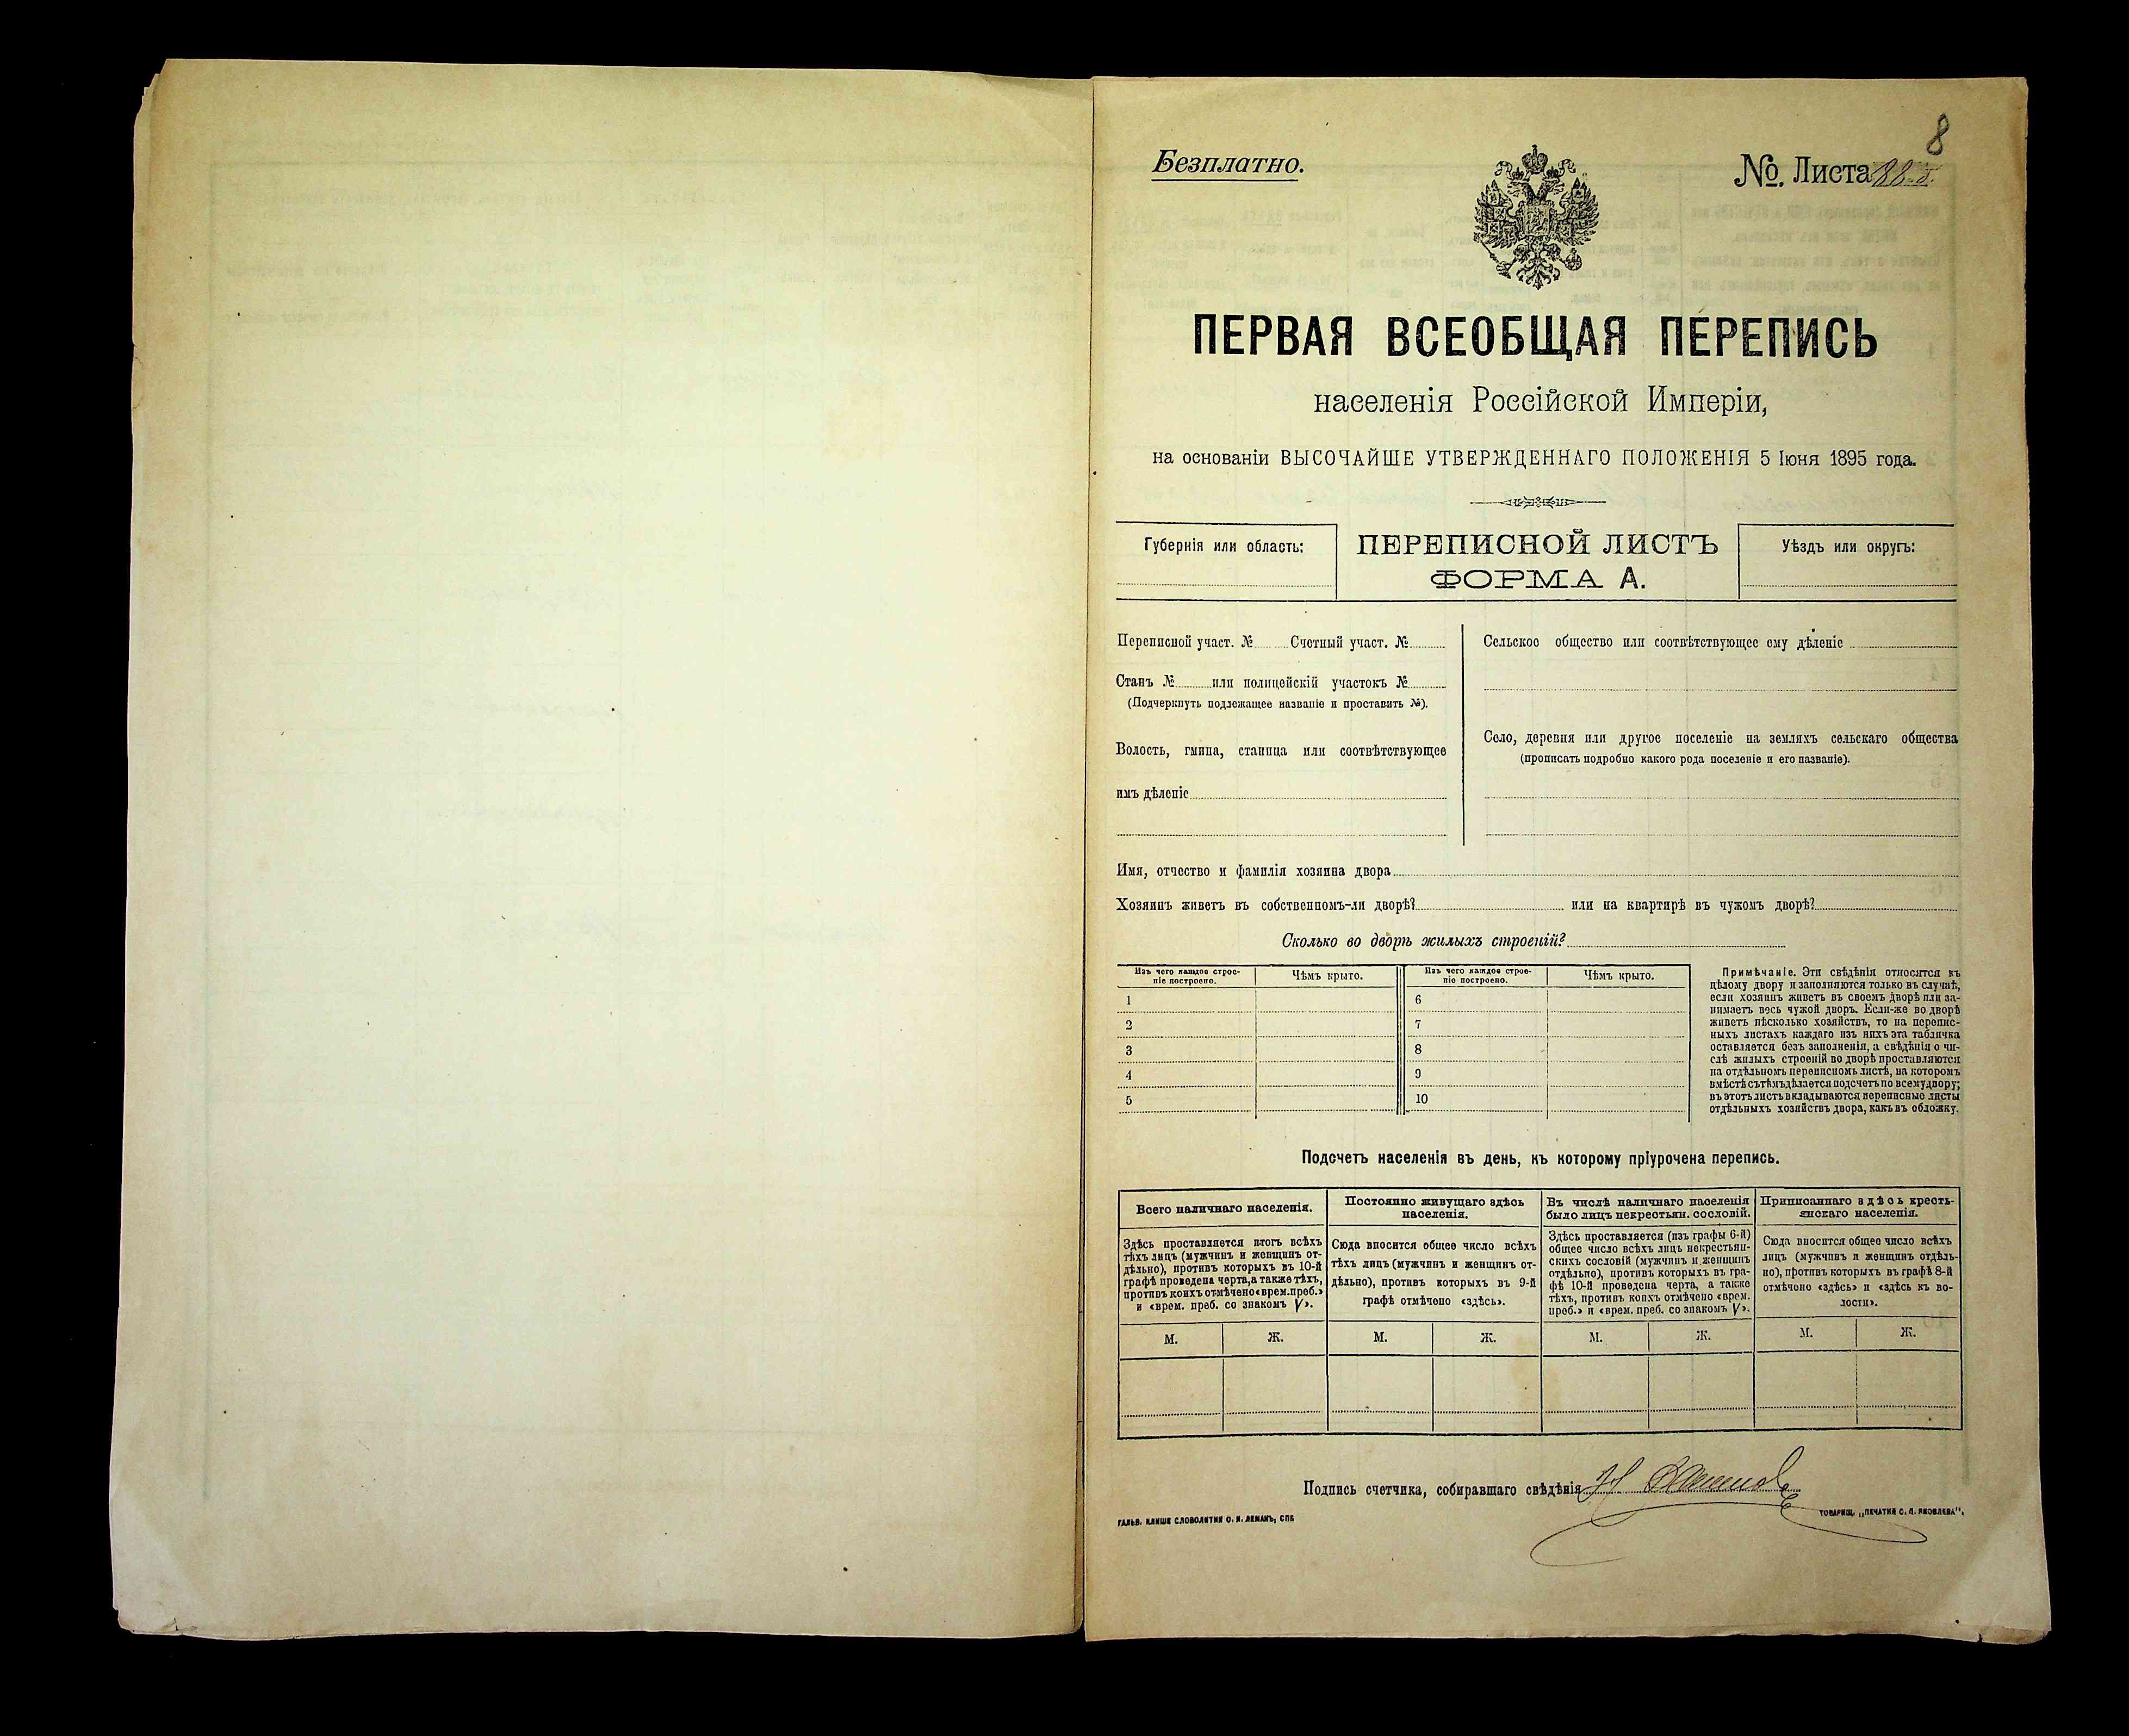 8
Безплатно.
№ Листа
ПЕРВАЯ ВСЕОБЩАЯ ПЕРЕПИСЬ
населенія Россійской Имперіи,
на основаніи ВЫСОЧАЙШЕ УТВЕРЖДЕННАГО ПОЛОЖЕНІЯ 5 Іюня 1895 года.
Губернія или область:
ПЕРЕПИСНОЙ ЛИСТЪ
ФОРМА А.
Уѣздъ или округъ:
Переписной участ. № Счетный участ. №
Станъ № или полицейскій участокъ №
(Подчеркнуть подлежащее названіе и проставить №).
Волость, гмина, станица или соотвѣтствующее
имъ дѣленіе
Сельское общество или соотвѣтствующее ему дѣленіе
Село, деревня или другое поселеніе на земляхъ сельскаго общества
(прописать подробно какого рода поселеніе и его названіе).
Имя, отчество и фамилія хозяина двора
Хозяинъ живетъ въ собственномъ-ли дворѣ? или на квартирѣ въ чужомъ дворѣ?
Сколько во дворѣ жилыхъ строеній?
Изъ чего каждое строе-
ніе построено.
Чѣмъ крыто.
Изъ чего каждое строе-
ніе построено.
Чѣмъ крыто.
1 6
2 7
3 8
4 9
5 10
Примѣчаніе. Эти свѣдѣнія относятся къ
цѣлому двору и заполняются только въ случаѣ,
если хозяинъ живетъ въ своемъ дворѣ или за-
нимаетъ весь чужой дворъ. Если-же во дворѣ
живетъ нѣсколько хозяйствъ, то на перепис-
ныхъ листахъ каждаго изъ нихъ эта табличка
оставляется безъ заполненія, а свѣдѣнія о чи-
слѣ жилыхъ строеній во дворѣ проставляются
на отдѣльномъ переписномъ листѣ, на которомъ
вмѣстѣ съ тѣмъ дѣлается подсчетъ по всему двору;
въ этотъ листъ вкладываются переписные листы
отдѣльныхъ хозяйствъ двора, какъ въ обложку.
Подсчетъ населенія въ день, къ которому пріурочена перепись.
Всего наличнаго населенія.
Здѣсь проставляется итогъ всѣхъ
тѣхъ лицъ (мужчинъ и женщинъ от-
дѣльно), противъ которыхъ въ 10-й
графѣ проведена черта, а также тѣхъ,
противъ коихъ отмѣчено «врем. преб.»
и «врем. преб. со знакомъ V».
Постоянно живущаго здѣсь
населенія.
Сюда вносится общее число всѣхъ
тѣхъ лицъ (мужчинъ и женщинъ от-
дѣльно), противъ которыхъ въ 9-й
графѣ отмѣчено «здѣсь».
Въ числѣ наличнаго населенія
было лицъ некрестьян. сословій.
Здѣсь проставляется (изъ графы 6-й)
общее число всѣхъ лицъ некрестьян-
скихъ сословій (мужчинъ и женщинъ
отдѣльно), противъ которыхъ въ гра-
фѣ 10-й проведена черта, а также
тѣхъ, противъ коихъ отмѣчено «врем.
преб.» и «врем. преб. со знакомъ V».
Приписаннаго здѣсь кресть-
янскаго населенія.
Сюда вносится общее число всѣхъ
лицъ (мужчинъ и женщинъ отдѣль-
но), противъ которыхъ въ графѣ 8-й
отмѣчено «здѣсь» и «здѣсь къ во-
лости».
М. Ж. М. Ж. М. Ж. М. Ж.
Подпись счетчика, собиравшаго свѣдѣнія
ГАЛЬВ. КЛИШЕ СЛОВОЛИТНИ О. И. ЛЕМАНЪ, СПБ
ТОВАРИЩ. „ПЕЧАТНЯ С. П. ЯКОВЛЕВА".